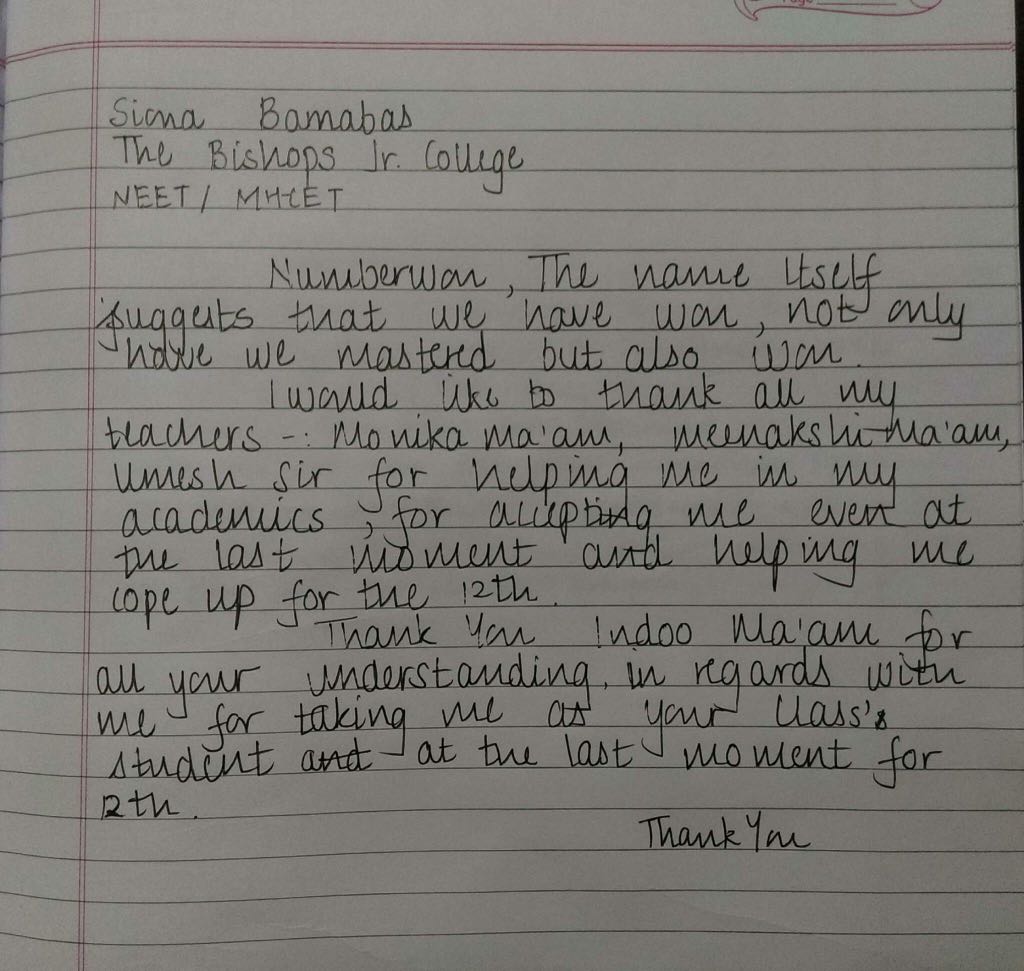 Siona Barnabas
The Bishops Jr. College
NEET / MH-CET
Numberwon, The name Itself
suggests that we have won, not only
have we mastered but also won.
I would like to thank all my
teachers -: Monika ma'am, meenakshi Ma'am,
Umesh Sir for helping me in my
academics, for accepting me even at
the last moment and helping me
cope up for the 12th.
Thank You Indoo Ma'am for
all your understanding, in regards with
me for taking me as your Class's
student and at the last moment for
12th.
Thank You